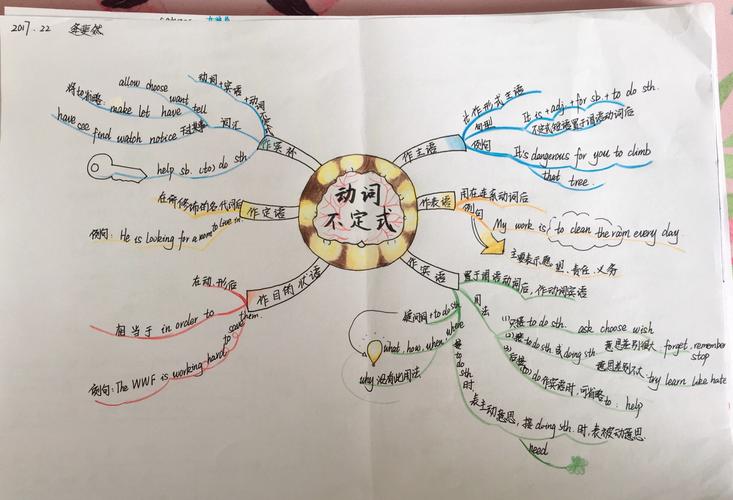 2017.22
动词
不定式
作宾补
动词+宾语+动词
词汇
allow choose
want tell
将to省略: make let have
have see find watch notice
help sb. (to) do sth
作定语
在所修饰的名代词后
例句: He is looking for a room to live in.
作目的状语
在动形后
相当于 in order to
例句: The WWF is working hard to save them.
作主语
it作形式主语
句型
It is + adj. + for sb. + to do sth.
不定式短语置于谓语动词后
例句
It's dangerous for you to climb
that tree.
作表语
用在连系动词后
例句
My work is to clean the room every day.
主要表示愿望、责任、义务
作宾语
置于谓语动词后,作动词宾语
用法
(1) 只接 to do sth. ask choose wish
(2) 接 to do sth. 或 doing sth. 意思差别很大: forget, remember
stop
意思差别不大: try learn like hate
(3) 后接 (to) do 作宾语时,可省略 to: help
接 to do sth 时
表主动意思,接 doing sth. 时,表被动意思
need
疑问词 + to do sth
what, how, when, where
why 没有此用法